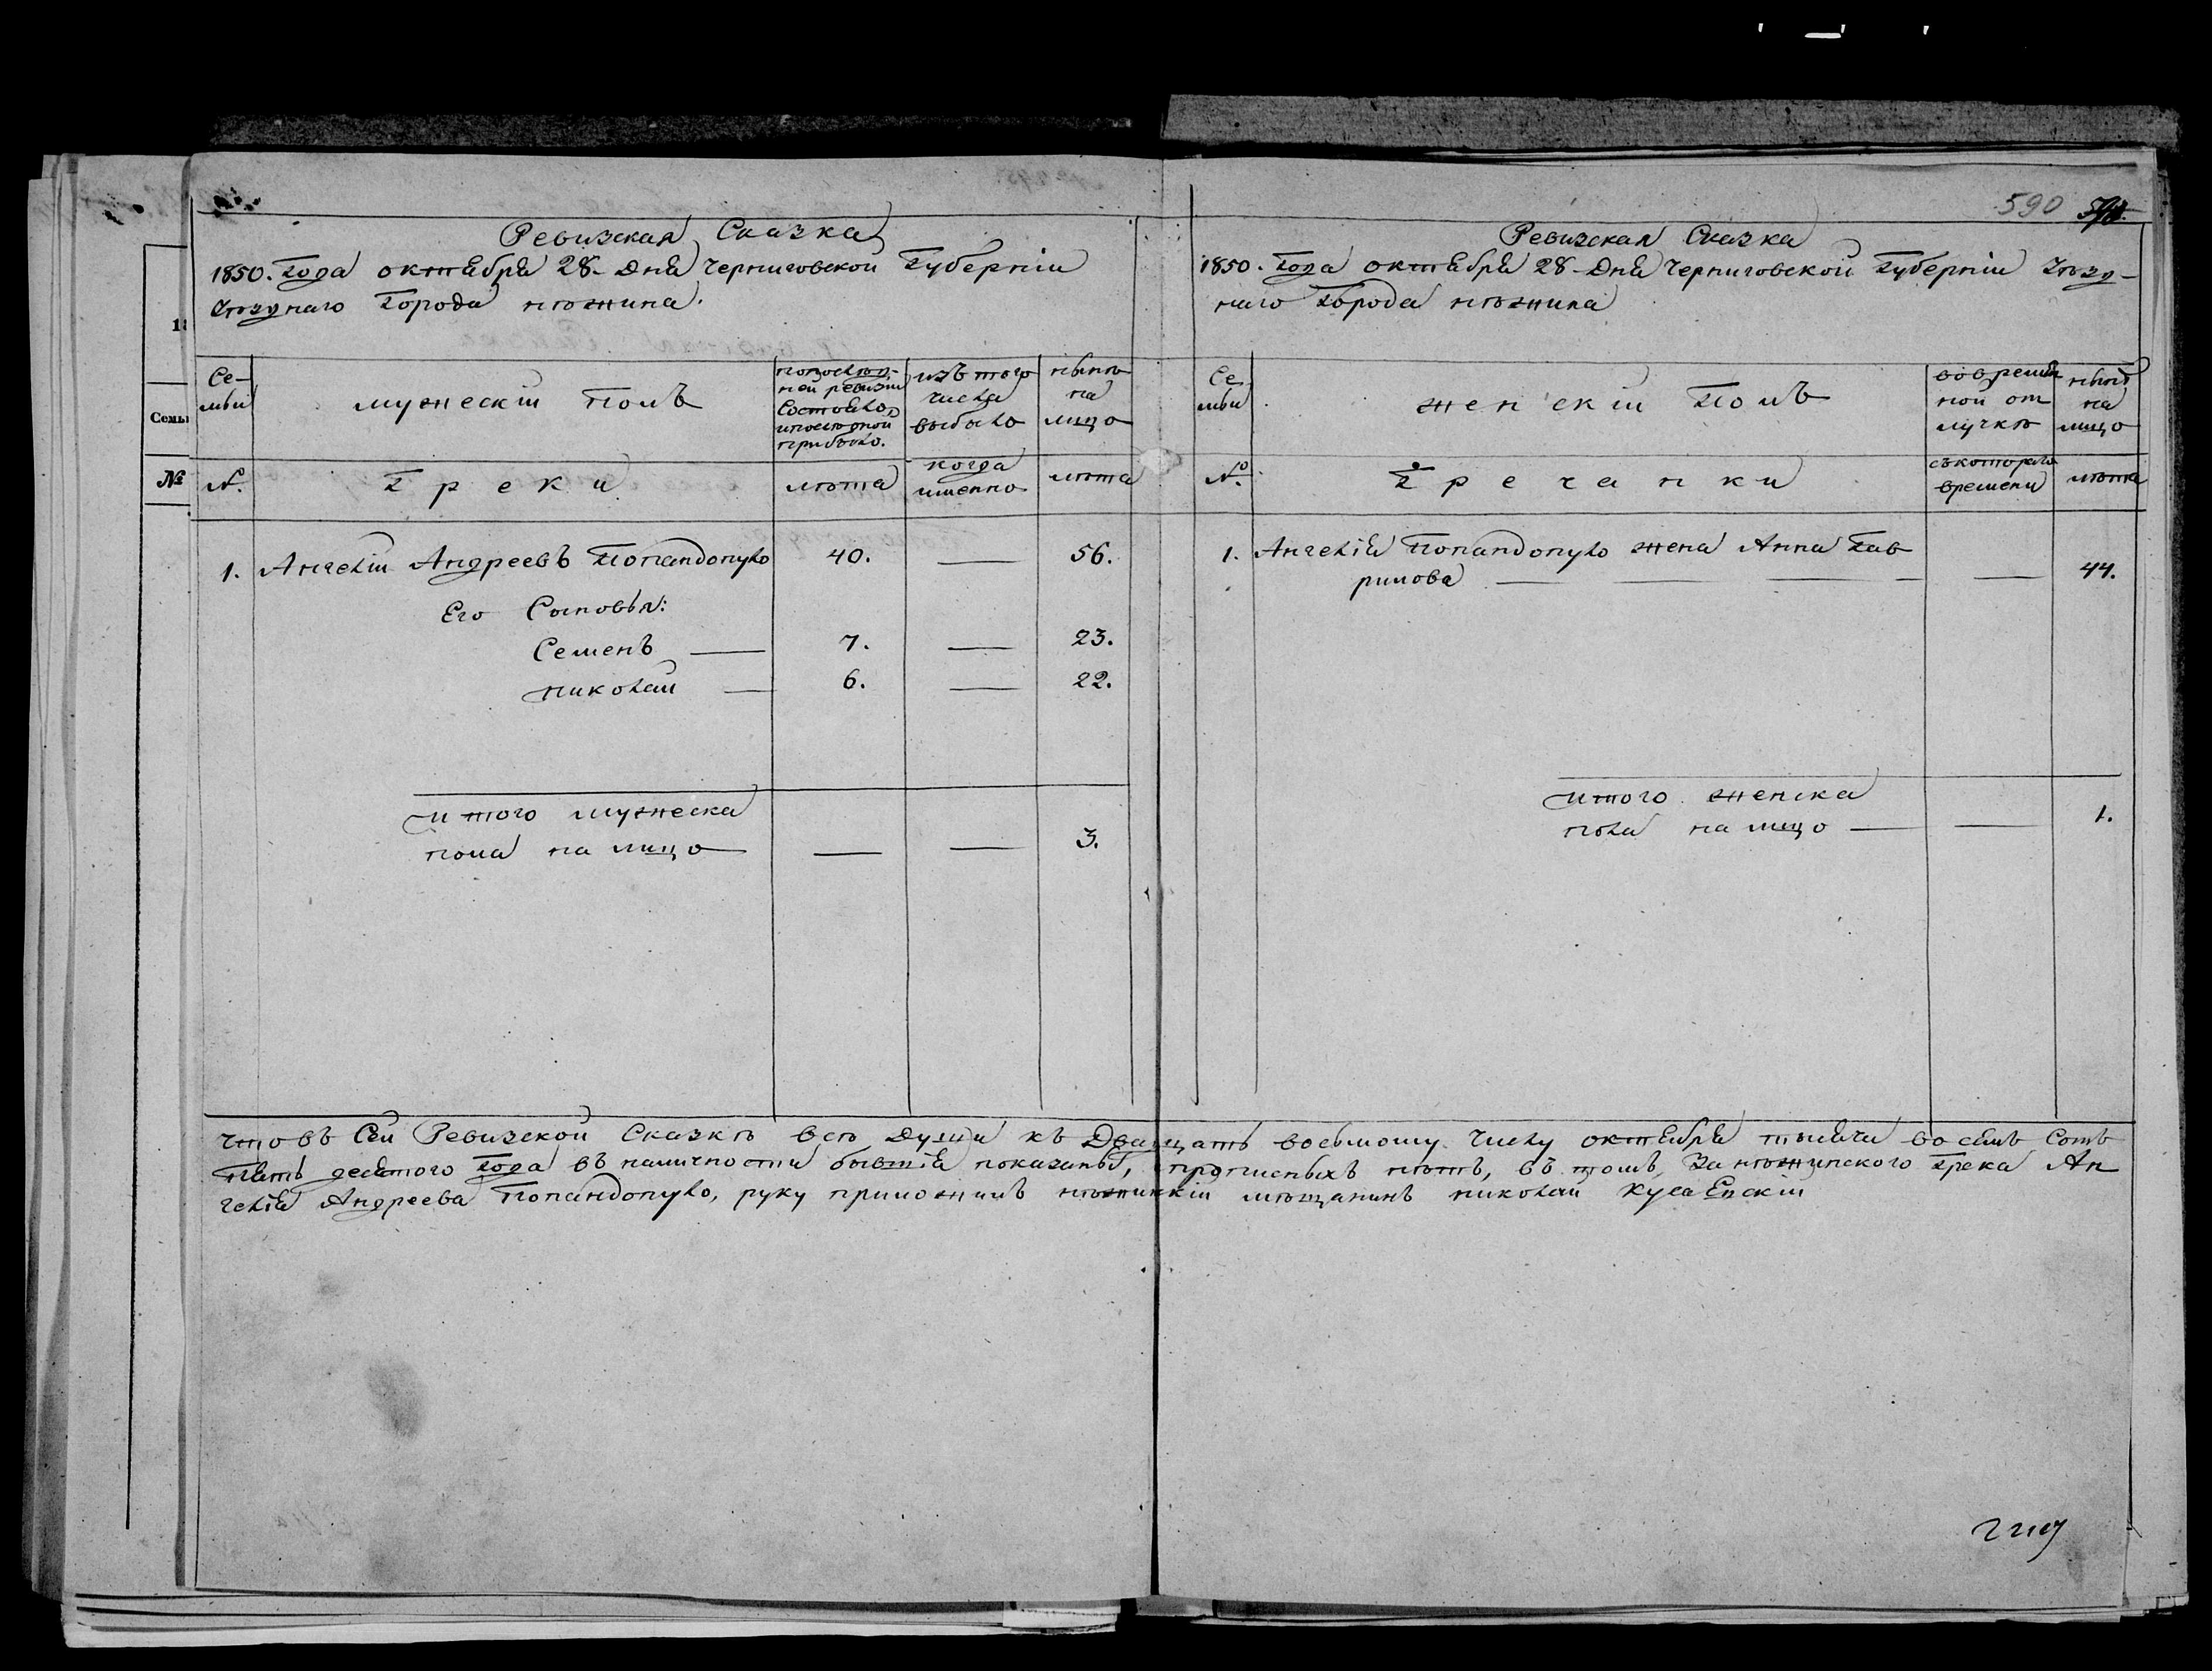 Ревизская Сказка
1850. Года октября 28. Дня Черниговской Губерніи
Уѣзднаго Города нѣжина.
Се-
мьи
мужескій Полъ
попослѣд-
ней ревизіи
Состояло,
ипослѣ оной
прибыло.
изъ того
числа
выбыло
нынѣ
на
лицо
№.
Греки
лѣта
когда
именно
лѣта
1. Ангелій Андреевъ Попандопуло 40. — 56.
Его Сыновья:
Семенъ — 7. — 23.
николай — 6. — 22.
итого мужеска
пола на лицо — — — 3.
590
Ревизская Сказка
1850. Года октября 28. Дня Черниговской Губерніи Уѣзд-
наго Города нѣжина
Се
мьи
женскій Полъ
вовремян
ной от
лучкѣ
нынѣ
на
лицо
№.
Гречанки
съкоторого
времени
лѣта
1. Ангелія Попандопуло жена Анна Гав
рилова — — — — 44.
итого женска
пола на лицо — — 1.
Что въ Сей Ревизской Сказкѣ всѣ Души къ Двадцать восьмому числу октября тысяча восемь Сотъ
Пять десятого Года въ наличности бывшія показаны, ипрописныхъ нѣтъ, въ томъ, За нѣжинского Грека Ан
гелія Андреева Попандопуло, руку приложилъ нѣжинкій мѣщанинъ николай
Семьи
№